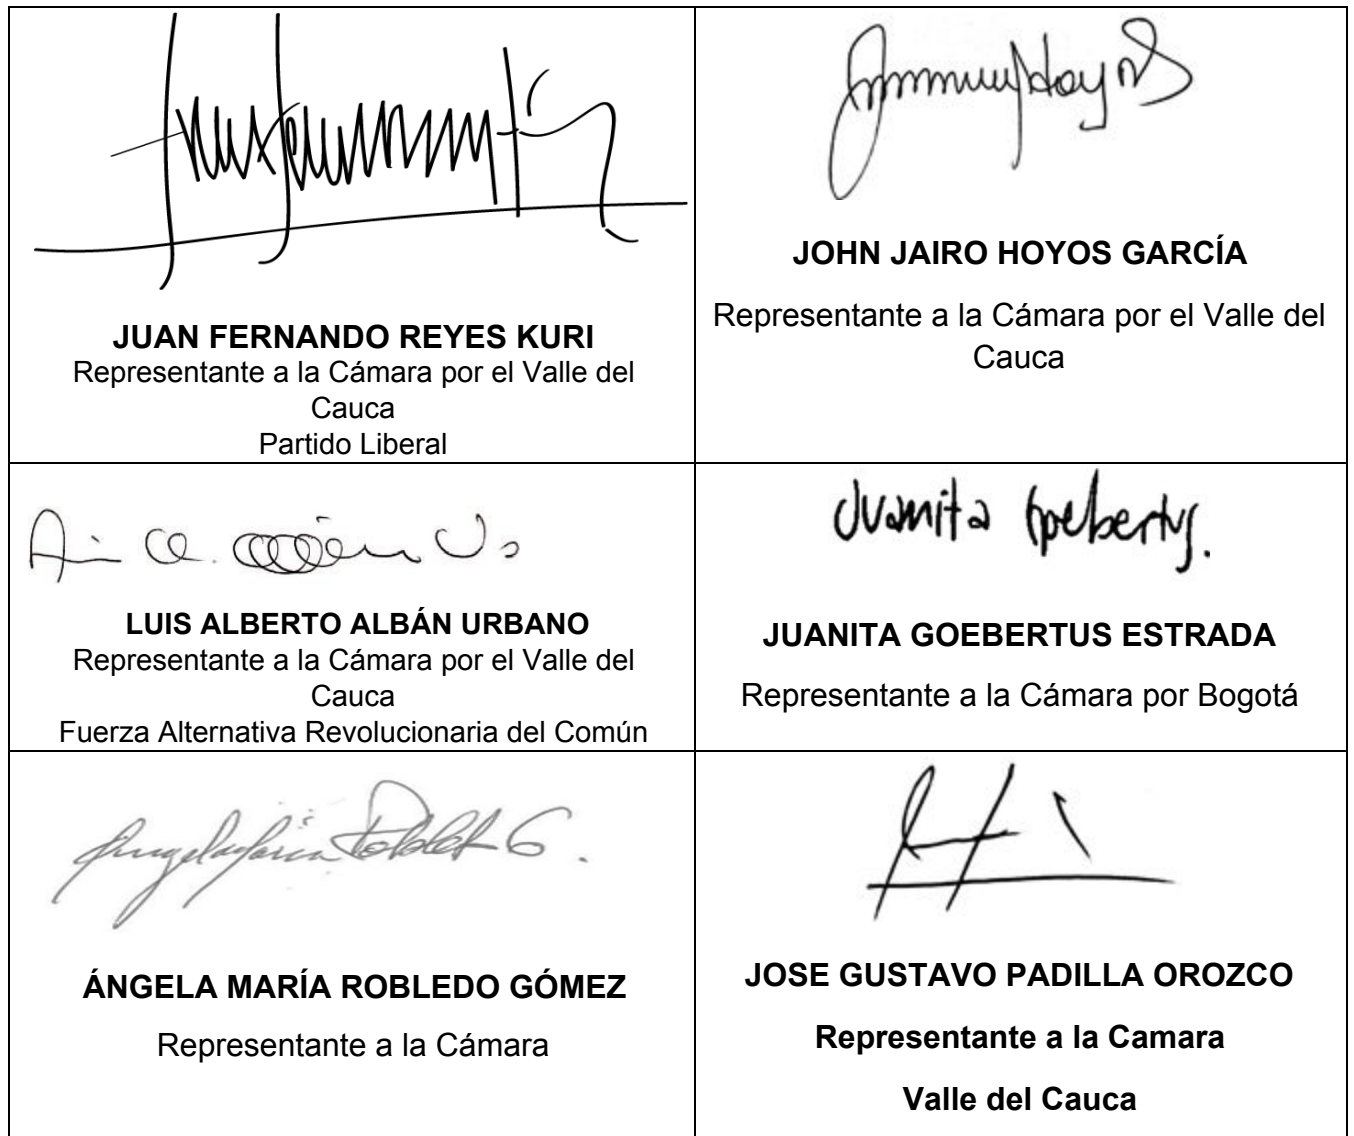 JUAN FERNANDO REYES KURI
Representante a la Cámara por el Valle del
Cauca
Partido Liberal
JOHN JAIRO HOYOS GARCÍA
Representante a la Cámara por el Valle del
Cauca
LUIS ALBERTO ALBÁN URBANO
Representante a la Cámara por el Valle del
Cauca
Fuerza Alternativa Revolucionaria del Común
Juanita Goebertus.
JUANITA GOEBERTUS ESTRADA
Representante a la Cámara por Bogotá
ÁNGELA MARÍA ROBLEDO GÓMEZ
Representante a la Cámara
JOSE GUSTAVO PADILLA OROZCO
Representante a la Camara
Valle del Cauca